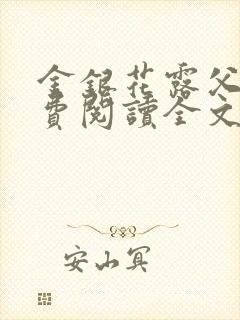 金銀花露父
費閱讀全文
安山冥